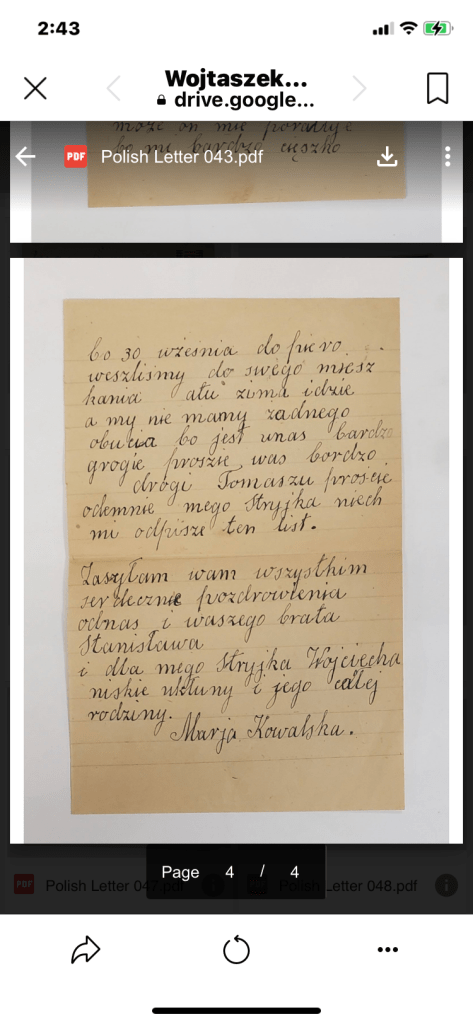 2:43
Wojtaszek...
drive.google...
może on mie poratuje
PDF Polish Letter 043.pdf
bo mi bardzo ciężko
bo 30 wześnia do piero
weszlismy do swego miesz
kania atu zima idzie
a my nie mamy żadnego
obucia bo jest unas bardzo
grogie proszie was bordzo
drogi Tomaszu prościе
odemnie mego Stryjka niech
mi odpisze ten list.
Zasyłam wam wszystkim
serdecznie pozdrowienia
odnas i waszego brata
Stanisława
i dla mego Stryjka Wojciecha
niskie ukłuny i jego całej
rodziny.
Marja Kowalska.
Page 4 / 4
PDF Polish Letter 047.pdf
Polish Letter 048.pdf